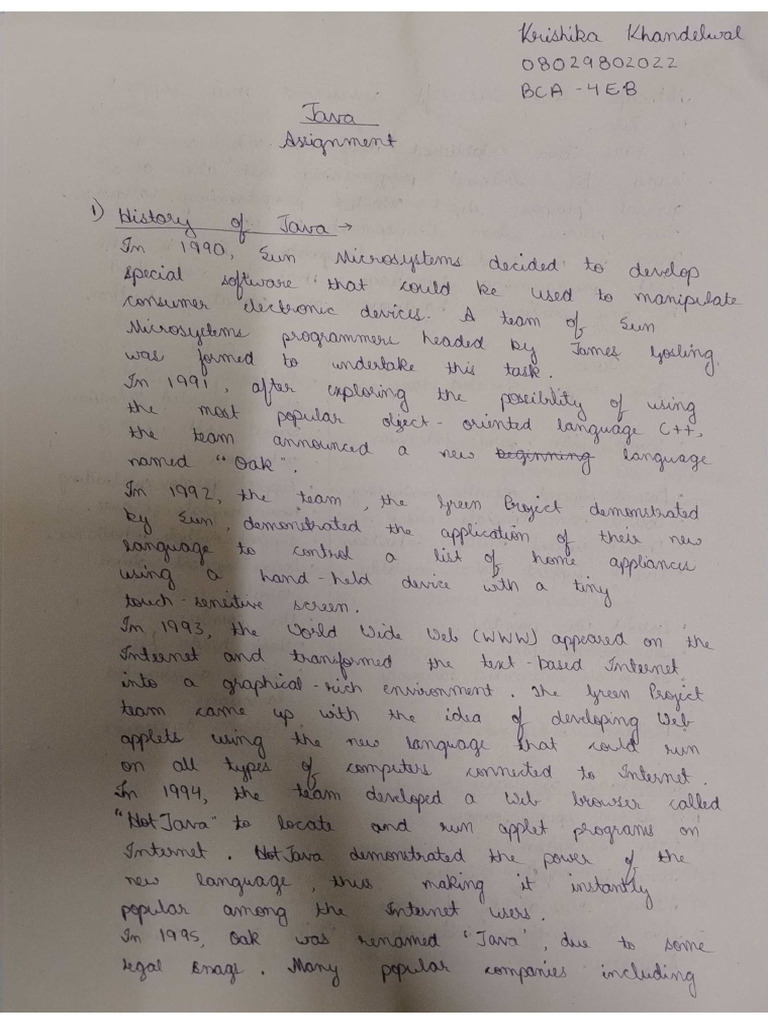 Krishika Khandelwal
08029802022
BCA - 4EB
Java
Assignment
1) History of Java →
In 1990, Sun Microsystems decided to develop
special software that could be used to manipulate
consumer electronic devices. A team of Sun
Microsystems programmers headed by James Gosling
was formed to undertake this task.
In 1991, after exploring the possibility of using
the most popular object-oriented language C++,
the team announced a new beginning language
named "Oak".
In 1992, the team, the Green Project demonstrated
by Sun, demonstrated the application of their new
language to control a list of home appliances
using a hand-held device with a tiny
touch-sensitive screen.
In 1993, the World Wide Web (WWW) appeared on the
Internet and transformed the text-based Internet
into a graphical-rich environment. The Green Project
team came up with the idea of developing Web
applets using the new language that could run
on all types of computers connected to Internet.
In 1994, the team developed a Web browser called
"Hot Java" to locate and run applet programs on
Internet. Hot Java demonstrated the power of the
new language, thus making it instantly
popular among the Internet users.
In 1995, Oak was renamed 'Java', due to some
legal snags. Many popular companies including